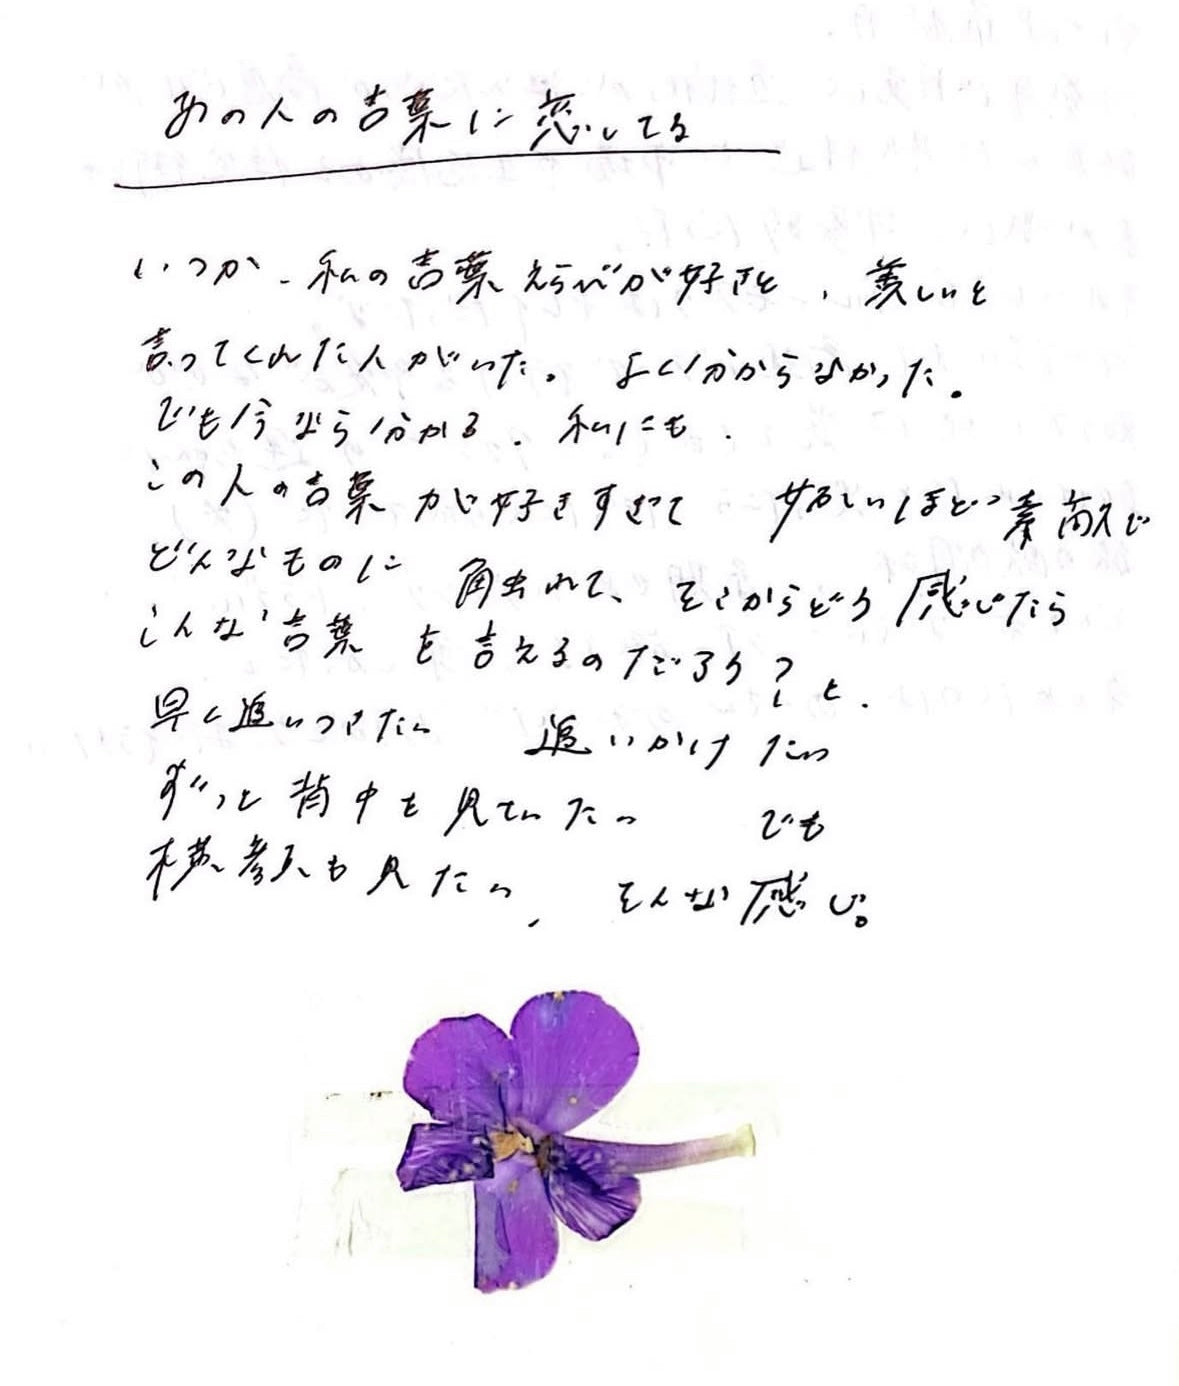 あの人の言葉に恋してる
いつか、私の言葉えらびが好きと、美しいと
言ってくれた人がいた。よく分からなかった。
でも今なら分かる。私にも。
この人の言葉が好きすぎて 妬しいほどっ素敵で
どんなものに 触れて、そこからどう感じたら
こんな言葉 を言えるのだろう?と、
早く追いつきたい 追いかけたい
ずっと背中を見ていたい でも
横顔も見たい、そんな感じ。